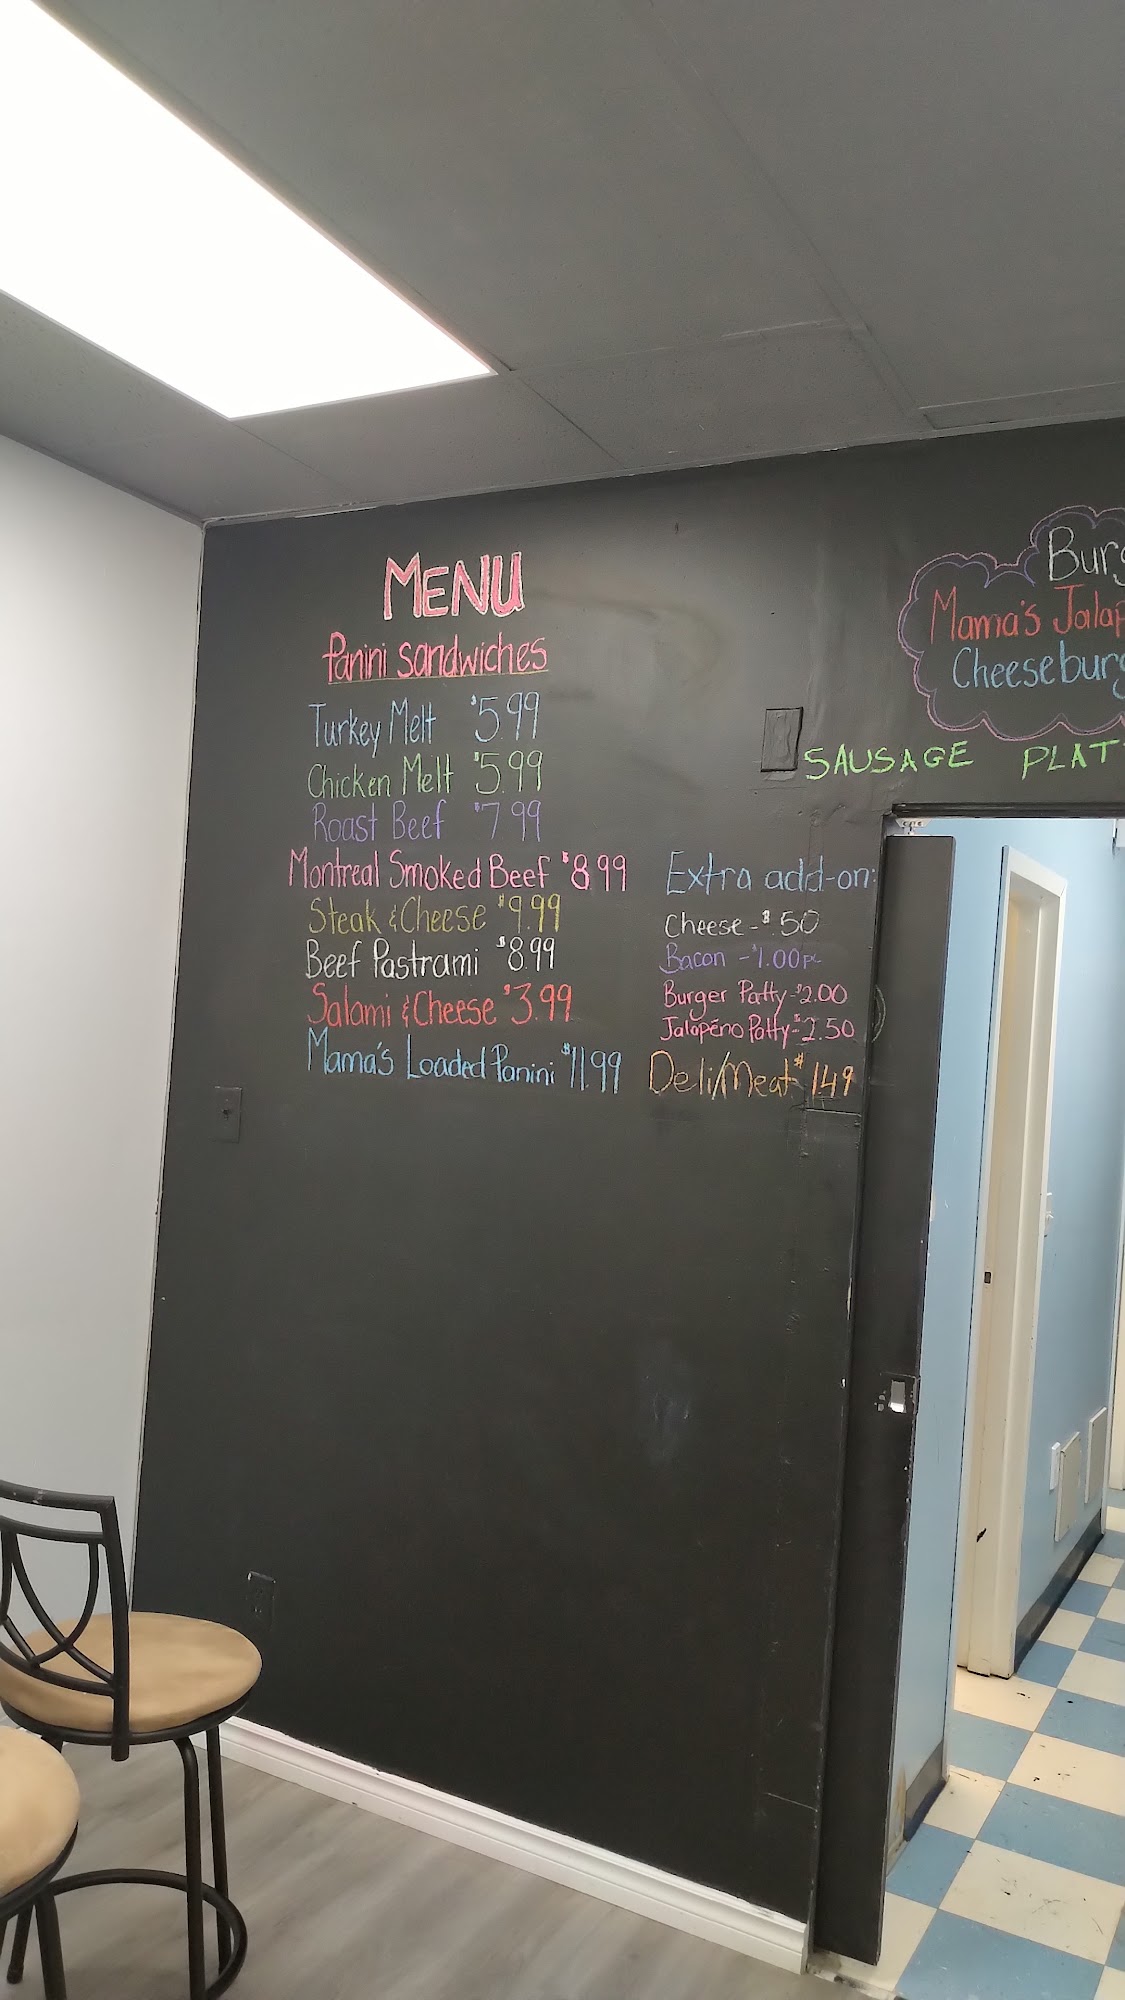 MENU
Panini sandwiches
Turkey Melt $5.99
Chicken Melt $5.99
Roast Beef $7.99
Montreal Smoked Beef $8.99
Steak & Cheese $9.99
Beef Pastrami $8.99
Salami & Cheese $3.99
Mama's Loaded Panini $11.99
Extra add-on:
Cheese - $.50
Bacon - $1.00 pc
Burger Patty - $2.00
Jalapéno Patty - $2.50
Deli/Meat $1.49
Mama's
SAUSAGE